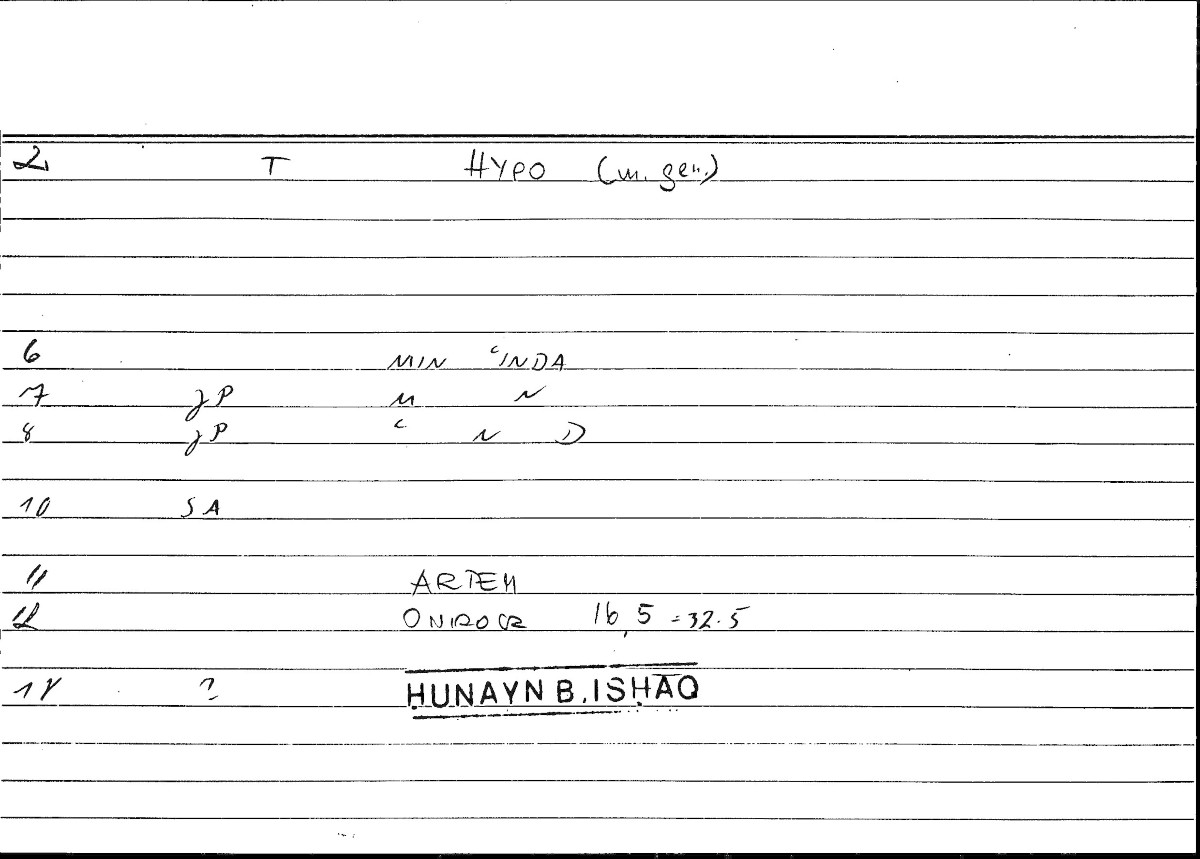 2. T HYPO (m. gen.)
6 MIN ʿINDA
7 JP M N
8 JP ʿ N D
10 SA
11 ARTEM
12 ONIROCR 16,5 = 32.5
14 ? ḤUNAYN B. ISḤĀQ